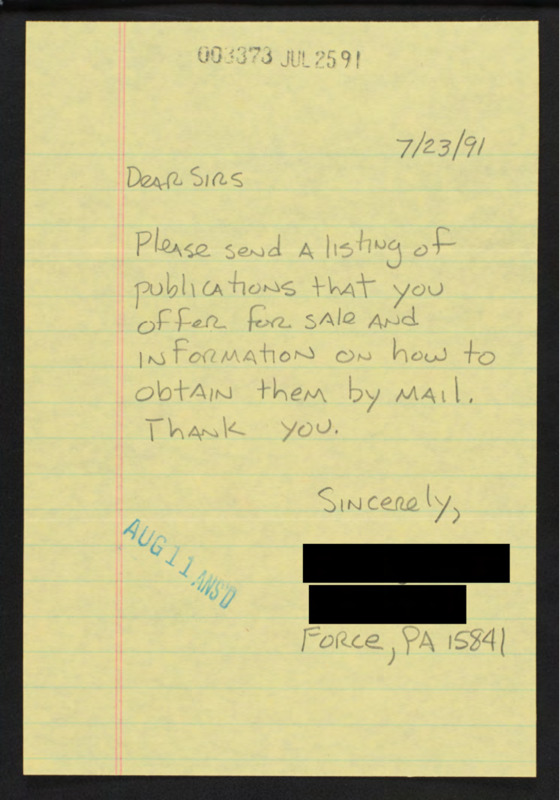 003373 JUL 25 91
7/23/91
Dear Sirs
Please send a listing of
publications that you
offer for sale and
information on how to
obtain them by mail.
Thank you.
Sincerely,
AUG 11 ANS'D
Force, PA 15841